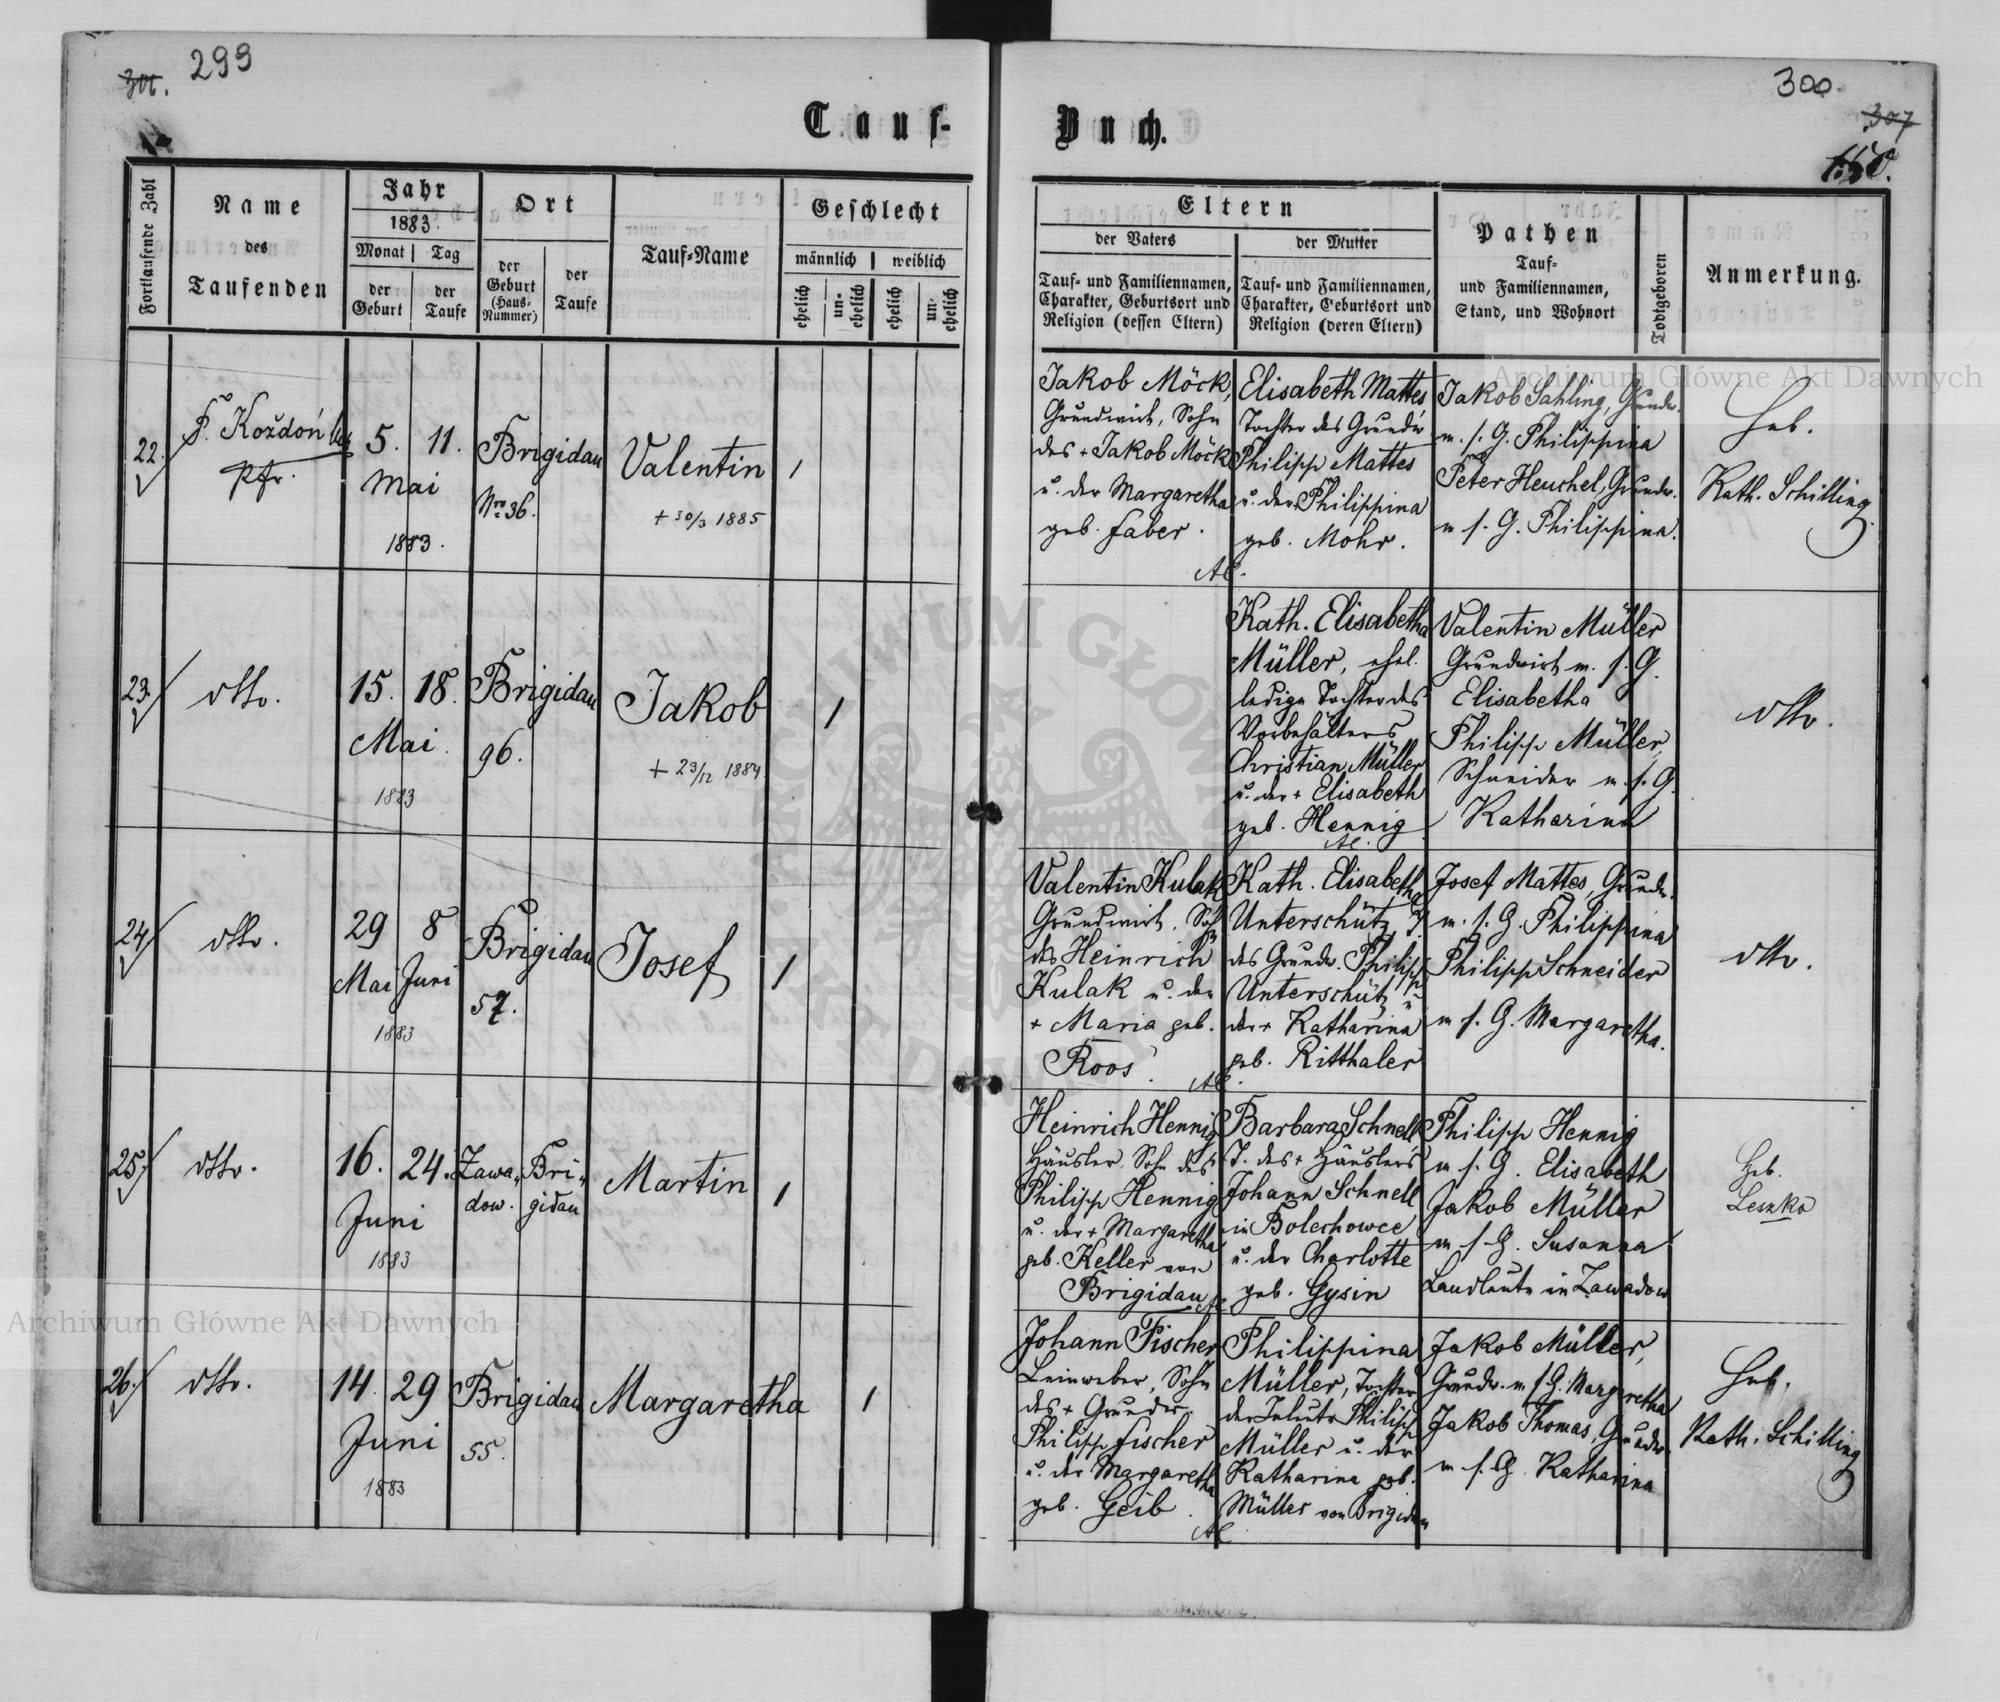 299
301.
Tauf-
Fortlaufende Zahl
Name
des
Taufenden
Jahr
1883.
Monat
Tag
der
Geburt
der
Taufe
Ort
der
Geburt
(Haus-
Nummer)
der
Taufe
Tauf-Name
Geschlecht
männlich
weiblich
ehelich
un-
ehelich
ehelich
un-
ehelich
22.
F. Koždoń
Pfr.
5. 11.
Mai
1883.
Brigidau
Nro 36.
Valentin
+ 30/3 1885
1
23.
dtto.
15. 18.
Mai.
1883
Brigidau
96.
Jakob
+ 23/12 1884
1
24
dtto.
29 8
Mai Juni
1883
Brigidau
57.
Josef
1
25.
dtto.
16. 24.
Juni
1883
Zawa-
dow.
Bri-
gidau
Martin
1
26.
dtto.
14. 29
Juni
1883
Brigidau
55.
Margaretha
1
300.
307
150.
Buch.
Eltern
der Vaters
der Mutter
Tauf- und Familiennamen,
Charakter, Geburtsort und
Religion (dessen Eltern)
Tauf- und Familiennamen,
Charakter, Geburtsort und
Religion (deren Eltern)
Pathen
Tauf-
und Familiennamen,
Stand, und Wohnort
Todtgeboren
Anmerkung.
Jakob Möck,
Grundwirt, Sohn
des + Jakob Möck
u. der Margaretha
geb. Faber.
AC.
Elisabeth Mattes
Tochter des Grundw.
Philipp Mattes
u. der Philippina
geb. Mohr.
Jakob Sahling, Grundw.
m. s. G. Philippina
Peter Heuchel, Grundw.
m s. G. Philippina.
Heb.
Kath. Schilling.
Kath. Elisabetha
Müller, ehel.
ledige Tochter des
Vorbehälters
Christian Müller
u. der + Elisabeth
geb. Hennig
AC.
Valentin Müller
Grundwirt m. s. G.
Elisabetha
Philipp Müller,
Schneider m. s. G.
Katharina
dtto.
Valentin Kulak
Grundwirt, Sohn
des Heinrich
Kulak u. der
+ Maria geb.
Roos.
AC.
Kath. Elisabetha
Unterschütz, T.
des Grundw. Philipp
Unterschütz u
der + Katharina
geb. Ritthaler
Josef Mattes, Grundw.
m. s. G. Philippina
Philipp Schneider
m s. G. Margaretha.
dtto.
Heinrich Hennig
Häusler, Sohn des
Philipp Hennig
u. der + Margaretha
geb. Keller von
Brigidau
Barbara Schnell,
T. des + Häuslers
Johann Schnell
in Bolechowce
u. der Charlotte
geb. Gysin
Philipp Hennig
m s. G. Elisabeth
Jakob Müller
m s. G. Susanna
Landleute in Zawadow
Heb.
Leszko
Johann Fischer
Leinweber, Sohn
des + Grundw.
Philipp Fischer
u. der Margaretha
geb. Geib.
AC.
Philippina
Müller, Tochter
der Inleute Philipp
Müller u. der
Katharina geb.
Müller von Brigidau
Jakob Müller,
Grundw. m s. G. Margaretha
Jakob Thomas, Grundw.
m s. G. Katharina
Heb.
Kath. Schilling
Archiwum Główne Akt Dawnych
Archiwum Główne Akt Dawnych
ARCHIWUM GŁÓWNE AKT DAWNYCH